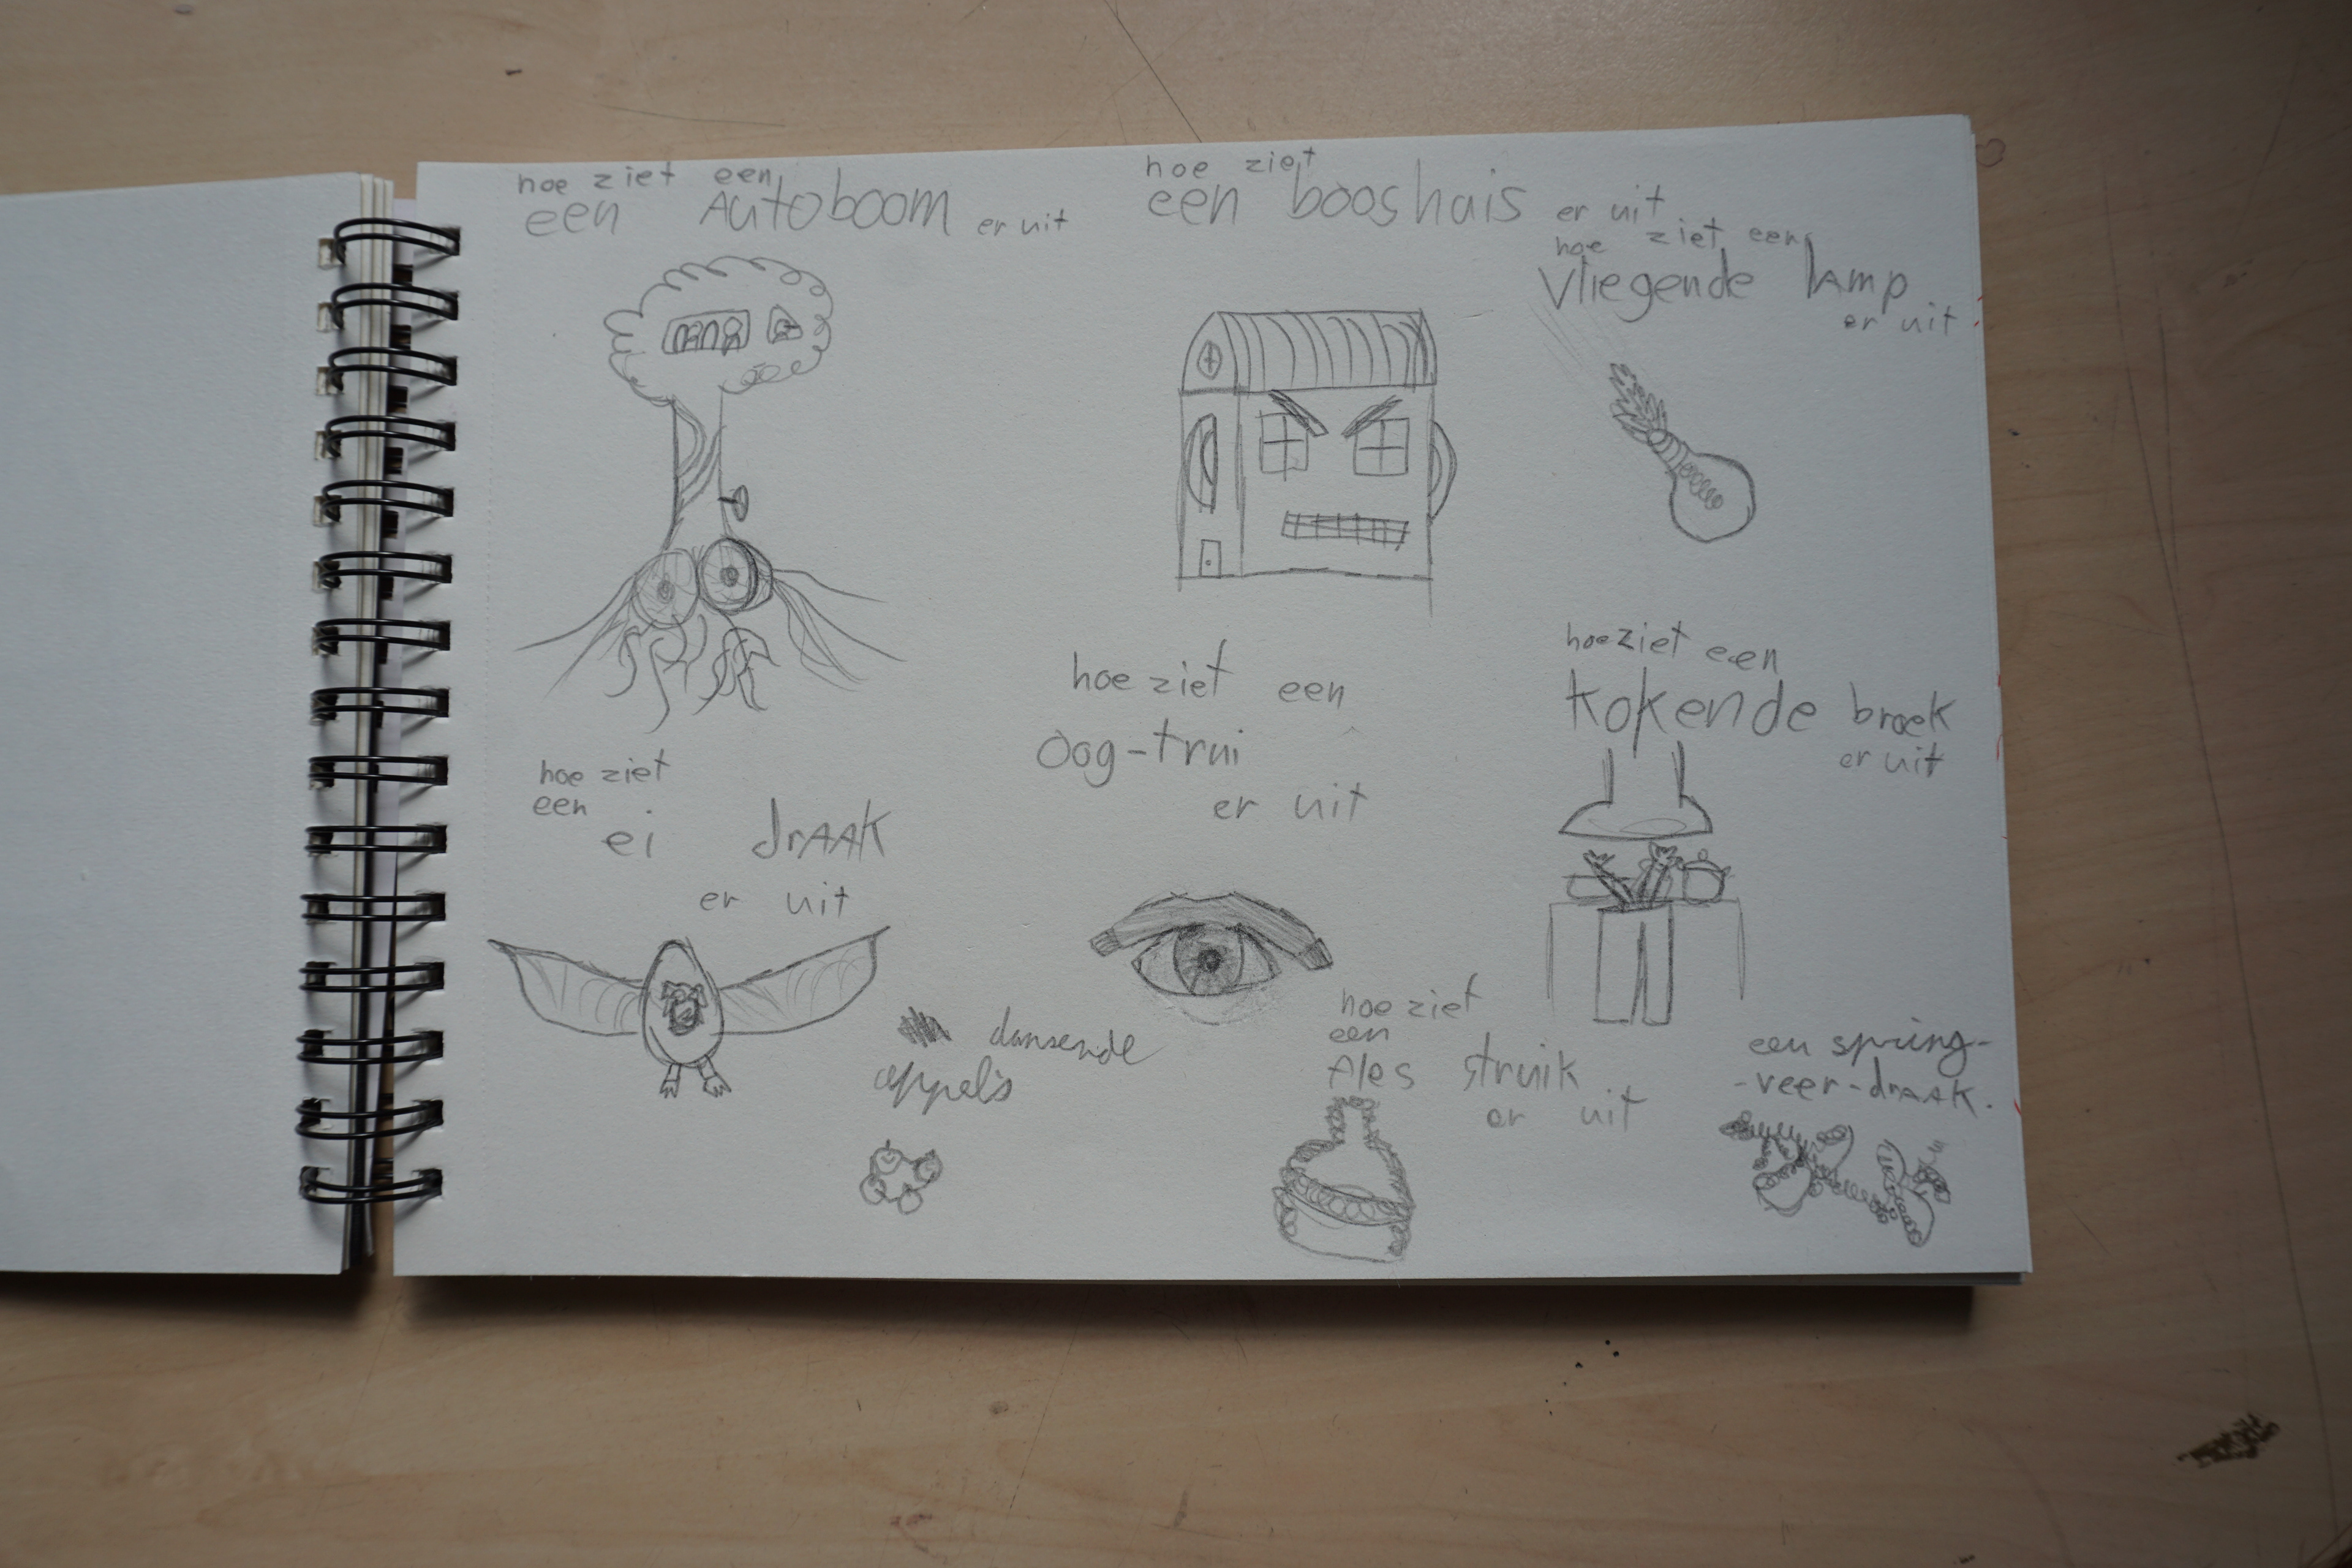 hoe ziet een
een Autoboom er uit
hoe ziet
een boos huis er uit
hoe ziet een
vliegende lamp
er uit
hoe ziet een
oog-trui
er uit
hoe ziet een
kokende broek
er uit
hoe ziet
een
ei draak
er uit
dansende
appels
hoe ziet
een
fles struik
er uit
een spring-
-veer-draak.